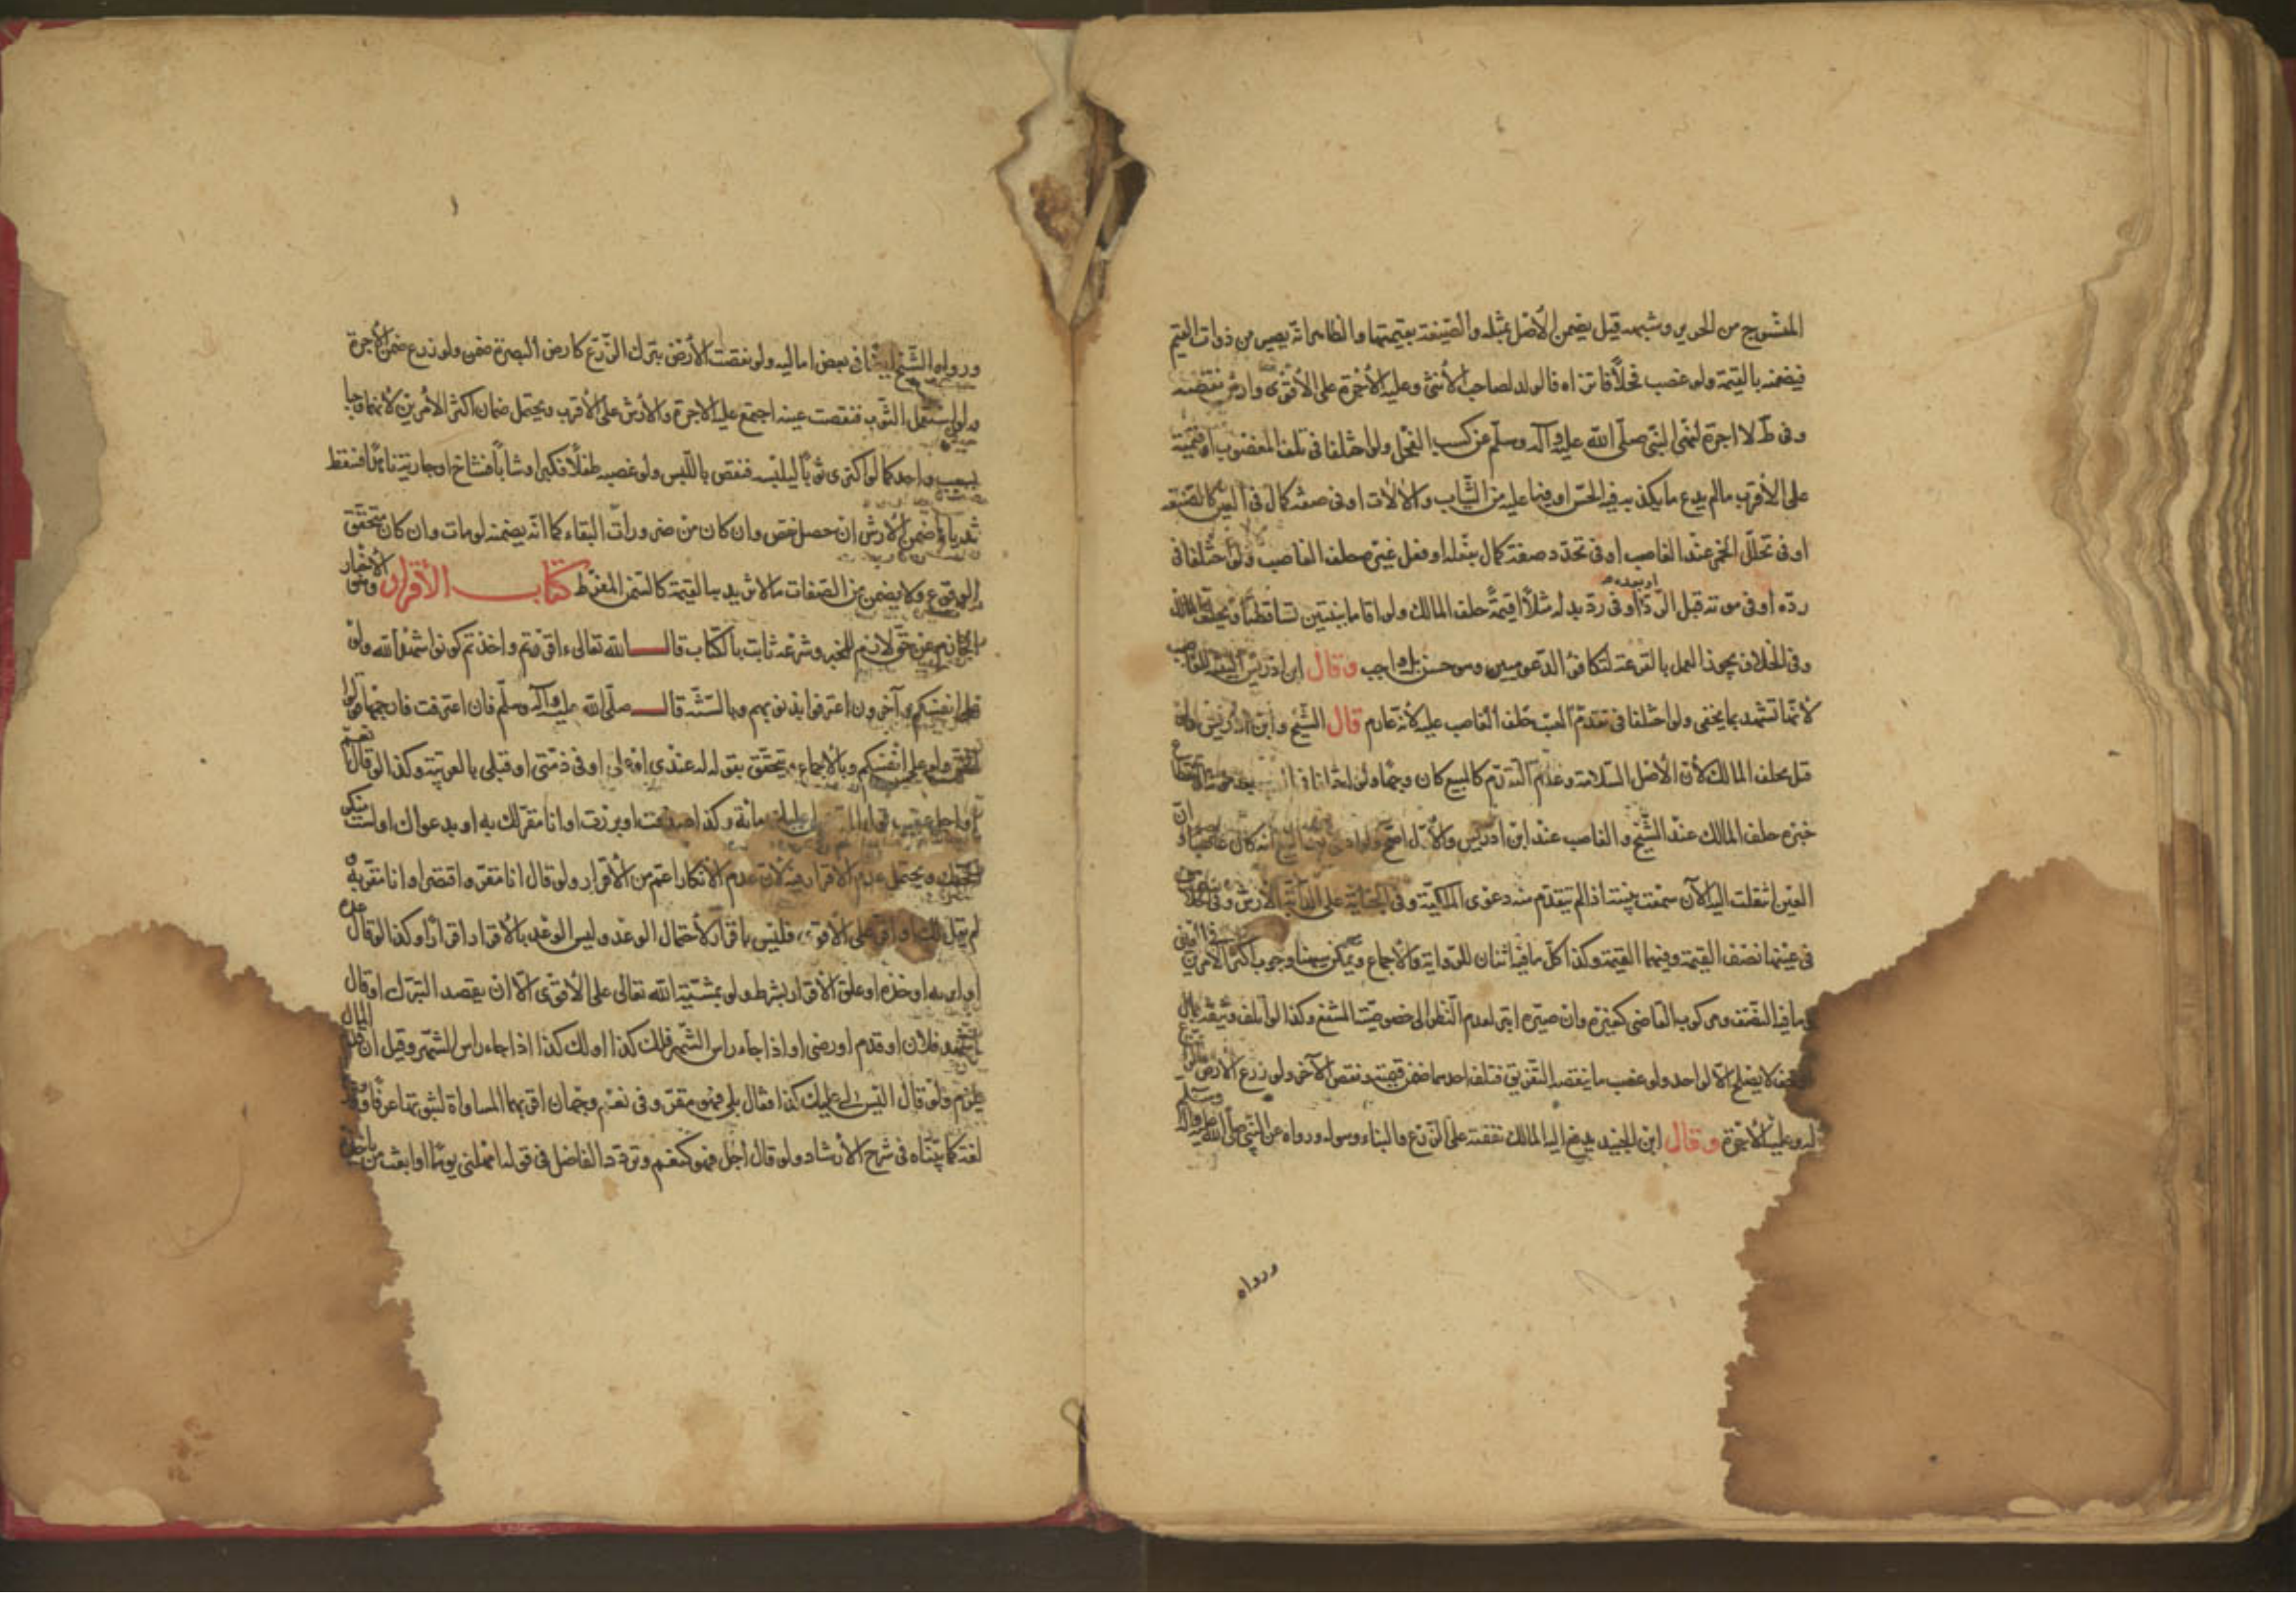 المنسوج من الحرير وشبهه قيل يضمن الأصل بمثله والصنعة بقيمتها والظاهر انه يصير من ذوات القيم
فيضمنه بالقيمة ولو غصب فحلا فانزاه فالولد لصاحب الأنثى وعليه الأجرة على الأقوى وارش نقصه
وفى ط لا اجرة لنهى النبى صلى الله عليه وآله وسلم عن كسب الفحل ولو اختلفا فى تلف المغصوب او قيمته
على الأقرب مالم يدع ما يكذبه فيه الحس او فيما عليه من الثياب والالات او فى صفة كمال فى العين كالصنعة
او فى تخلل الخمر عند الغاصب او فى تجدد صفة كمال بفعله او فعل غيره حلف الغاصب ولو اختلفا فى
رده او فى موته قبل الرد او بعده او فى رد بدله مثلا او قيمة حلف المالك ولو اقاما بينتين تساقطتا
وفى الخلاف يجوز العمل بالقرعة لتكافؤ الدعويين وهو حسن بل واجب وقال ابن ادريس البينة للغاصب
لأنها تشهد بما يخفى ولو اختلفا فى تقدم العيب حلف الغاصب عليه لأنه غارم قال الشيخ وابن ادريس ولو
قيل يحلف المالك لأن الأصل السلامة وعدم التقدم كالبيع كان وجها ولو
خبره حلف المالك عند الشيخ والغاصب عند ابن ادريس والأول اصح ولو ادعى
العين انتقلت اليه الآن سمعت بينته اذا لم يتقدم منه دعوى الملكية وفى الجناية على الدابة الأرش وفى
فى عينها نصف القيمة وفيهما القيمة وكذا كل ما فيه اثنان للرواية والأجماع ويمكن هنا وجوب اكثر الأمرين
ما فيه النصف ومركوب القاضى كغيره وان صيره ابتر لعدم النظر الى خصوصية المنتفع وكذا لو اتلف
لا يصلح الا لواحد ولو غصب ما ينقصه التفريق فتلف احدهما ضمن قيمته ونقص الآخر ولو زرع الارض
له وعليه الأجرة وقال ابن الجنيد يدفع اليه المالك نفقته على الزرع والبناء وهو له ورواه عن النبى صلى الله عليه وآله وسلم
ورواه
ورواه الشيخ ايضا فى بعض اماليه ولو نقصت الأرض بترك الزرع كارض البصرة ضمن ولو زرع ضمن الأجرة
ولو استعمل الثوب فنقصت عينه اجتمع عليه الاجرة والأرش على الأقرب ويحتمل ضمان اكثر الأمرين لأنهما وجبا
بسبب واحد كما لو اكترى ثوبا ليلبسه فنقص باللبس ولو غصبه طفلا فكبر او شابا فشاخ او جارية ناهدا فسقط
ثدياها ضمن الأرش ان حصل نقص وان كان من ضرورات البقاء كما انه يضمنه لو مات وان كان متحقق
الوقوع ولا يضمن من الصفات مالا تزيد به القيمة كالسمن المفرط كتاب الأقرار وهو الأخبار
الجازم عن حق لازم للمخبر وشرعه ثابت بالكتاب قال الله تعالى ءاقررتم واخذتم كونوا شهداء لله ولو
على انفسكم وآخرون اعترفوا بذنوبهم وبالسنة قال صلى الله عليه وآله وسلم فان اعترفت فارجمها قولوا
الحق ولو على انفسكم وبالأجماع ويتحقق بقوله له عندى او على او فى ذمتى او قبلى بالعربية وكذا لو قال نعم
او اجل عقيب قول المدعى لى عليك مائة وكذا صدقت او بررت او انا مقر لك به او بدعواك او لست منكر
لحقك ويحتمل عدم الاقرار فيه لأن عدم الأنكار اعم من الأقرار ولو قال انا مقر واقتصر او انا مقر به
لم يقل لك او اقر على الأقوى فليس باقرار لأحتمال الوعد وليس الوعد بالأقرار اقرارا وكذا لو قال عده
او خذه او علق الأقرار بشرط ولو بمشيئة الله تعالى على الأقوى الا ان يقصد التبرك او قال
فلان او قدم او رضى او اذا جاء راس الشهر فلك كذا او لك كذا اذا جاء راس الشهر وقيل ان
يلزم ولو قال اليس لى عليك كذا فقال بلى فهو مقر وفى نعم وجهان اقربهما المساواة لثبوتها عرفا
لغة كما بيناه فى شرح الأرشاد ولو قال اجل فهو كنعم وتردد الفاضل فى قوله امهلنى يوما او ابعث من